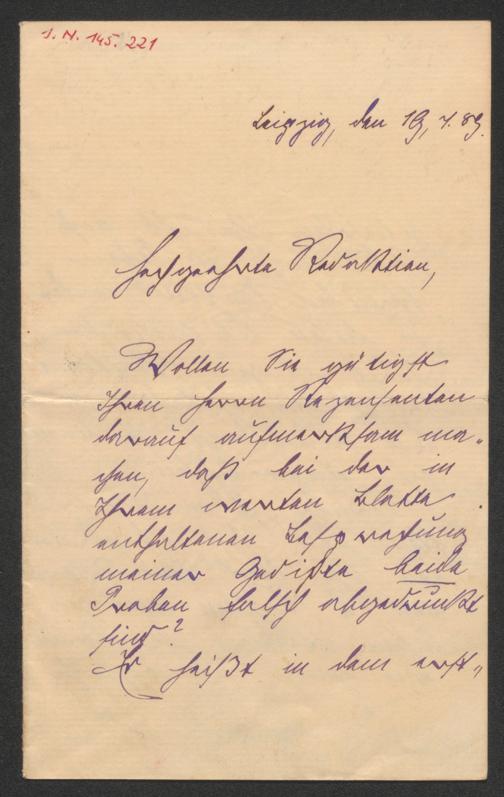 J. N. 145. 221
Leipzig, den 19, 7. 89.
Hochgeehrte Redaktion,
Wollen Sie gütigst
Ihren Herrn Rezensenten
darauf aufmerksam ma-
chen, daß bei der in
Ihrem werten Blatte
enthaltenen Besprechung
meiner Gedichte beide
Proben falsch abgedruckt
sind?
Es heißt in dem erst-